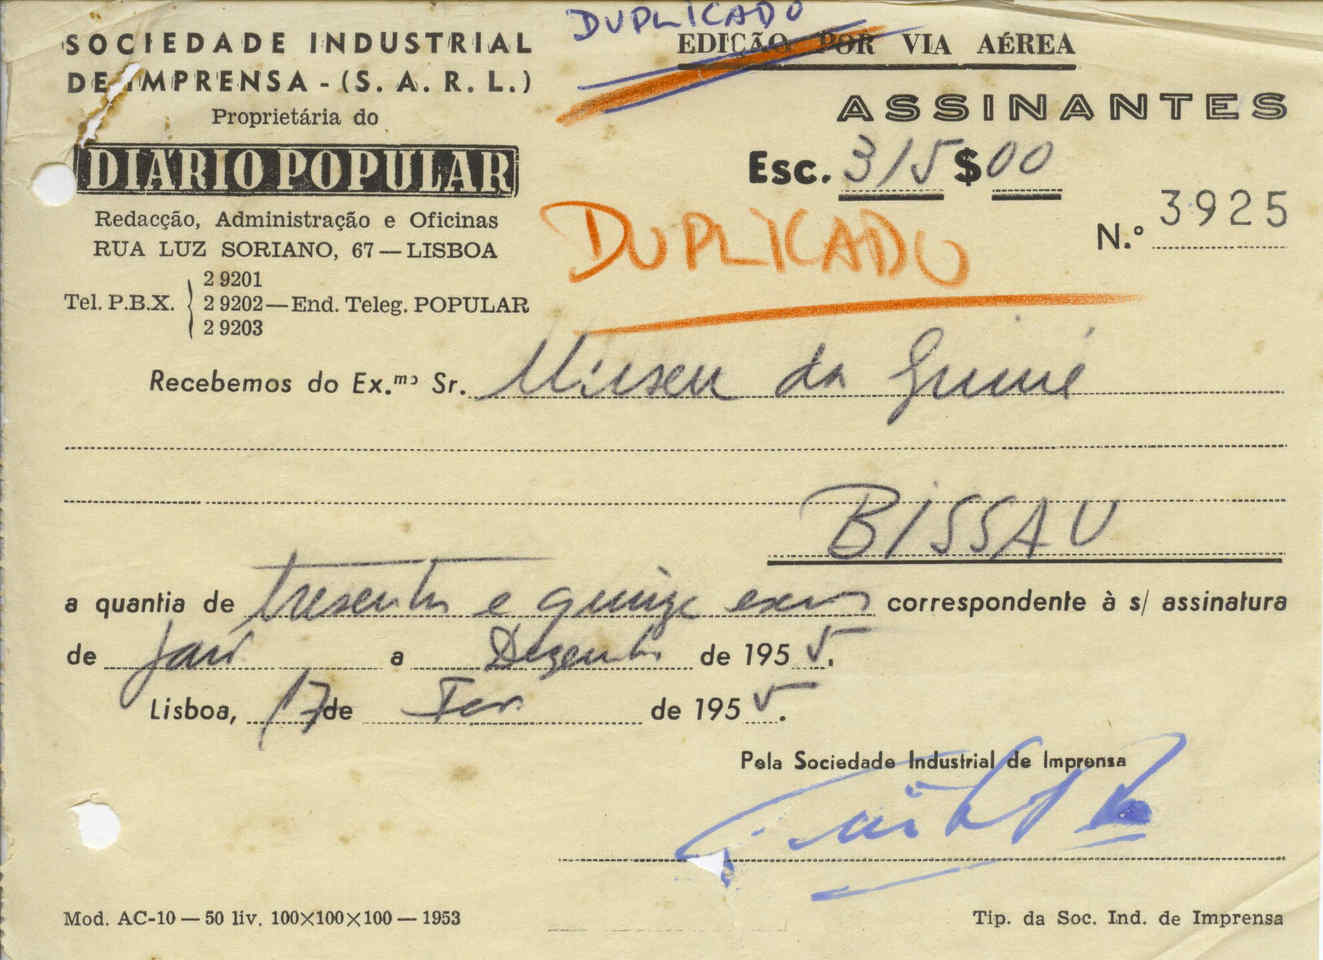 DUPLICADO
SOCIEDADE INDUSTRIAL
DE IMPRENSA - (S. A. R. L.)
Proprietária do
DIÁRIO POPULAR
Redacção, Administração e Oficinas
RUA LUZ SORIANO, 67 — LISBOA
2 9201
Tel. P.B.X. 2 9202 — End. Teleg. POPULAR
2 9203
EDIÇÃO POR VIA AÉREA
ASSINANTES
Esc. 315$00
N.º 3925
DUPLICADO
Recebemos do Ex.mo Sr. Museu da Guiné
BISSAU
a quantia de tresentos e quinze escs correspondente à s/ assinatura
de Janº a Dezembro de 1955.
Lisboa, 17 de Fev de 1955.
Pela Sociedade Industrial de Imprensa
Mod. AC-10 — 50 liv. 100×100×100 — 1953
Tip. da Soc. Ind. de Imprensa